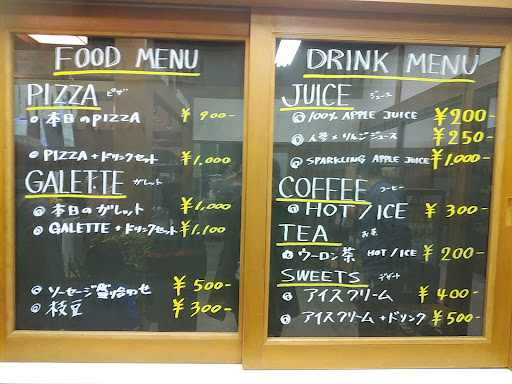 FOOD MENU
PIZZA ピザ
本日のPIZZA ¥900-
PIZZA+ドリンクセット ¥1,000
GALETTE ガレット
本日のガレット ¥1,000
GALETTE+ドリンクセット ¥1,100
ソーセージ盛り合わせ ¥500-
枝豆 ¥300-
DRINK MENU
JUICE ジュース
100% APPLE JUICE ¥200-
人参×りんごジュース ¥250-
SPARKLING APPLE JUICE ¥1,000-
COFFEE コーヒー
HOT/ICE ¥300-
TEA お茶
ウーロン茶 HOT/ICE ¥200-
SWEETS デザート
アイスクリーム ¥400-
アイスクリーム+ドリンク ¥500-